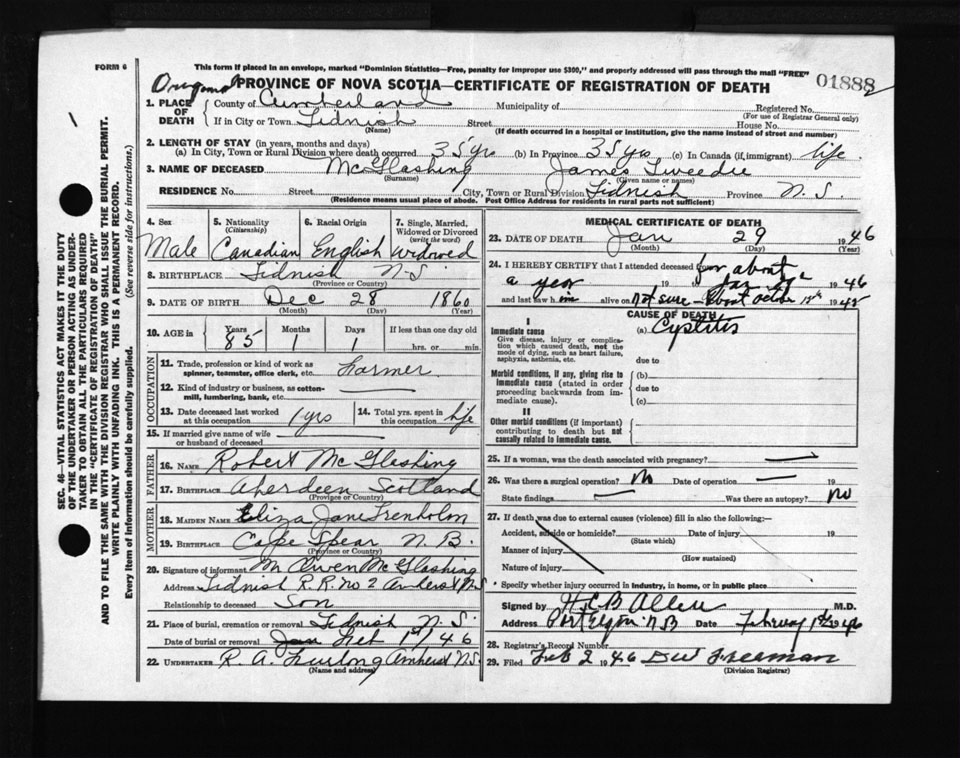 FORM 6
This form if placed in an envelope, marked "Dominion Statistics—Free, penalty for improper use $300," and properly addressed will pass through the mail "FREE"
PROVINCE OF NOVA SCOTIA—CERTIFICATE OF REGISTRATION OF DEATH 01888
1. PLACE OF DEATH { County of Cumberland Municipality of Registered No.
(For use of Registrar General only)
If in City or Town Tidnish Street House No.
(Name) (If death occurred in a hospital or institution, give the name instead of street and number)
2. LENGTH OF STAY (in years, months and days)
(a) In City, Town or Rural Division where death occurred 35 yrs (b) In Province 35 yrs (c) In Canada (if immigrant) life
3. NAME OF DECEASED McGlashing James Tweedie
(Surname) (Given name or names)
RESIDENCE No. Street City, Town or Rural Division Tidnish Province N.S.
(Residence means usual place of abode. Post Office Address for residents in rural parts not sufficient)
4. Sex Male
5. Nationality (Citizenship) Canadian
6. Racial Origin English
7. Single, Married, Widowed or Divorced (write the word) Widowed
8. BIRTHPLACE Tidnish N.S.
(Province or Country)
9. DATE OF BIRTH Dec 28 1860
(Month) (Day) (Year)
10. AGE in Years 85 Months 1 Days 1 If less than one day old
hrs. or min.
OCCUPATION
11. Trade, profession or kind of work as spinner, teamster, office clerk, etc. Farmer
12. Kind of industry or business, as cotton-mill, lumbering, bank, etc. —
13. Date deceased last worked at this occupation 1 yrs
14. Total yrs. spent in this occupation life
15. If married give name of wife or husband of deceased —
FATHER
16. NAME Robert McGlashing
17. BIRTHPLACE Aberdeen Scotland
(Province or Country)
MOTHER
18. MAIDEN NAME Eliza Jane Trenholm
19. BIRTHPLACE Cape Spear N.B.
(Province or Country)
20. Signature of informant M Owen McGlashing
Address Tidnish R.R. no 2 Amherst N.S.
Relationship to deceased Son
21. Place of burial, cremation or removal Tidnish N.S.
Date of burial or removal Jan Feb 1st/46
22. UNDERTAKER R. A. Furlong Amherst N.S.
(Name and address)
MEDICAL CERTIFICATE OF DEATH
23. DATE OF DEATH Jan 29 1946
(Month) (Day) (Year)
24. I HEREBY CERTIFY that I attended deceased for about
a year 19 Jan 1946
and last saw him alive on not sure - about 1945
CAUSE OF DEATH
I
Immediate cause (a) Cystitis
Give disease, injury or complication which caused death, not the mode of dying, such as heart failure, asphyxia, asthenia, etc.
due to
Morbid conditions, if any, giving rise to immediate cause (stated in order proceeding backwards from immediate cause).
(b)
due to
(c)
II
Other morbid conditions (if important) contributing to death but not causally related to immediate cause.
25. If a woman, was the death associated with pregnancy? —
26. Was there a surgical operation? no Date of operation — 19
State findings — Was there an autopsy? no
27. If death was due to external causes (violence) fill in also the following:—
Accident, suicide or homicide? Date of injury 19
(State which)
Manner of injury
(How sustained)
Nature of injury
* Specify whether injury occurred in industry, in home, or in public place
Signed by H C B Allen M.D.
Address Port Elgin N B Date February 1st 1946
28. Registrar's Record Number
29. Filed Feb 2 1946 Freeman
(Division Registrar)
SEC. 46—VITAL STATISTICS ACT MAKES IT THE DUTY
OF THE UNDERTAKER OR PERSON ACTING AS UNDER-
TAKER TO OBTAIN ALL THE PARTICULARS REQUIRED
IN THE "CERTIFICATE OF REGISTRATION OF DEATH"
AND TO FILE THE SAME WITH THE DIVISION REGISTRAR WHO SHALL ISSUE THE BURIAL PERMIT.
WRITE PLAINLY WITH UNFADING INK. THIS IS A PERMANENT RECORD.
Every item of information should be carefully supplied. (See reverse side for instructions.)